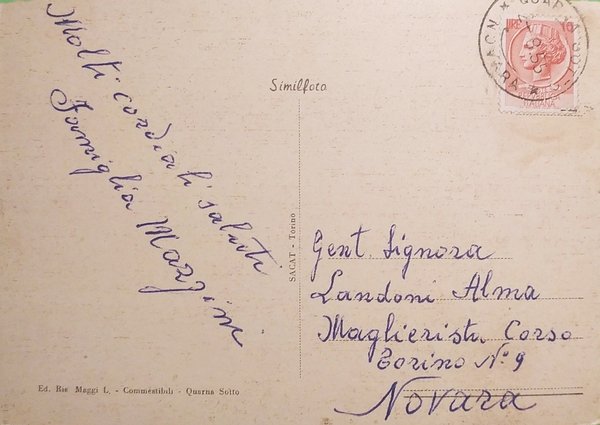 Molti cordiali saluti
Famiglia Mazzini
Similfoto
SACAT - Torino
Ed. Rie Maggi L. - Commestibili - Quarna Sotto
LIRE 10
ITALIANA
Gent. Signora
Landoni Alma
Maglierista Corso
Torino N. 9
Novara